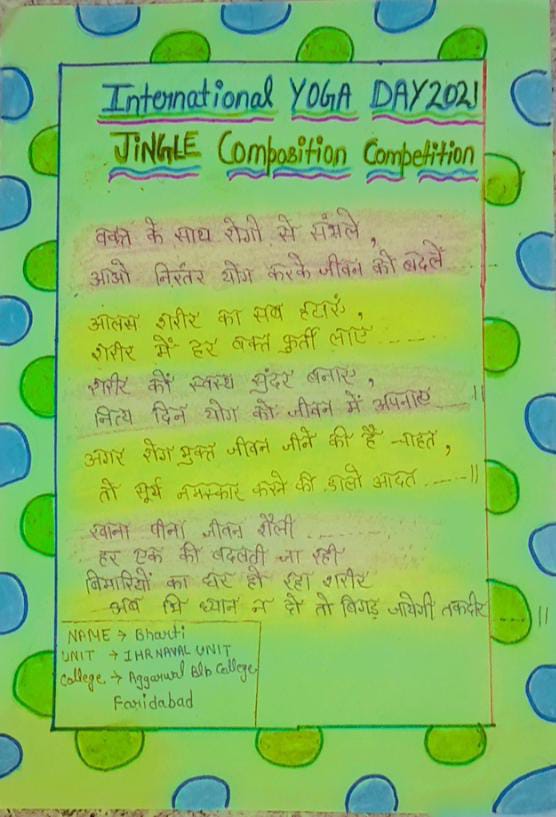 International YOGA DAY 2021
JINGLE Composition Competition
वक्त के साथ रोगो से संभले,
आओ निरंतर योग करके जीवन को बदलें
आलस शरीर का सब हटाएं,
शरीर में हर वक्त फुर्ती लाए ......
शरीर को स्वस्थ सुंदर बनाए,
नित्य दिन योग को जीवन में अपनाए ....॥
अगर रोग मुक्त जीवन जीने की है चाहत,
तो सूर्य नमस्कार करने की डालो आदत .....॥
खाना पीना जीवन शैली .........
हर एक की बदलती जा रही
बिमारियों का घर हो रहा शरीर
अब भि ध्यान न दो तो बिगड़ जायेगी तकदीर ....॥
NAME → Bharti
UNIT → 1HR NAVAL UNIT
College → Aggarwal Blb College
Faridabad